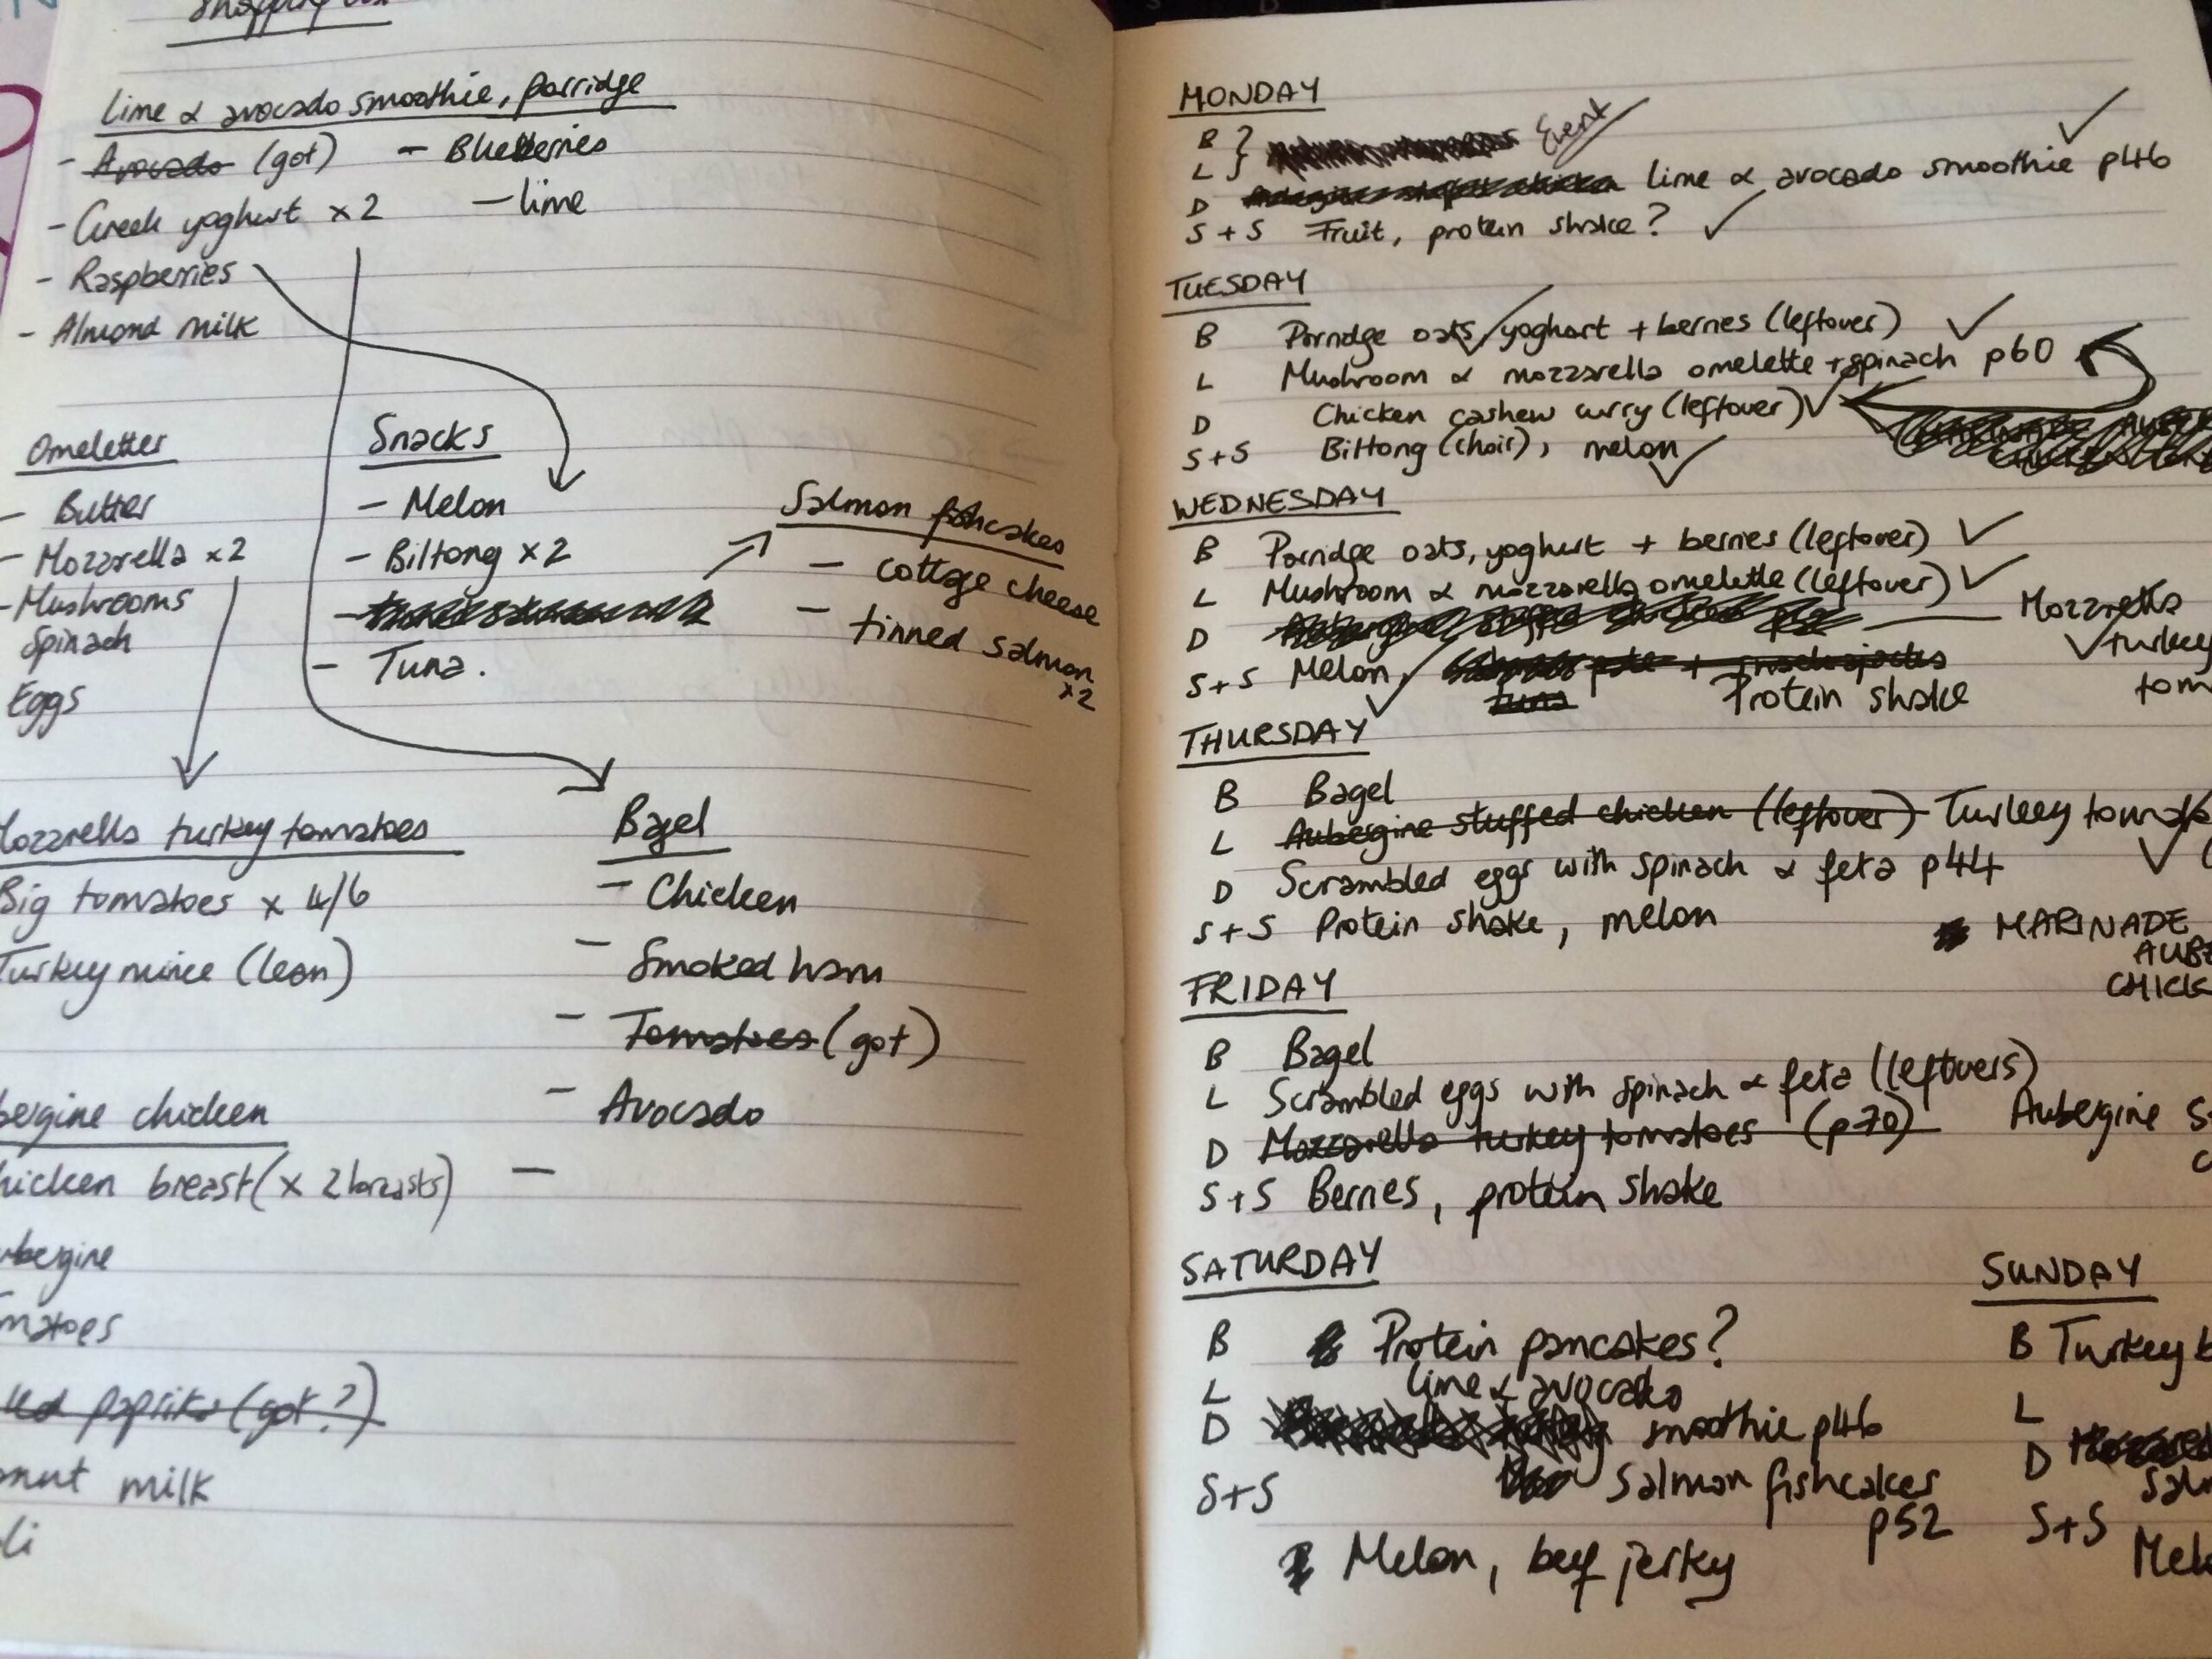 Shopping list
Lime & avocado smoothie, porridge
- Avocado (got) - Blueberries
- Greek yoghurt x2 - lime
- Raspberries
- Almond milk
Omeletter
- Butter
- Mozzarella x2
- Mushrooms
Spinach
Eggs
Snacks
- Melon
- Biltong x2
- Tuna.
Salmon fishcakes
- cottage cheese
- tinned salmon
x2
Mozzarella turkey tomatoes
Big tomatoes x 4/6
Turkey mince (lean)
Bagel
- Chicken
- Smoked ham
- Tomatoes (got)
- Avocado
-
bergine chicken
hicken breast (x 2 breasts)
ubergine
matoes
paprika (got?)
onut milk
li
MONDAY
B } Event
L }
D lime & avocado smoothie p46
S+S Fruit, protein shake? ✓
TUESDAY
B Porridge oats, yoghurt + berries (leftover) ✓
L Mushroom & mozzarella omelette + spinach p60
D Chicken cashew curry (leftover) ✓
S+S Biltong (choir), melon ✓
WEDNESDAY
B Porridge oats, yoghurt + berries (leftover) ✓
L Mushroom & mozzarella omelette (leftover) ✓
D Mozzarella
✓ turkey
tom
S+S Melon, ✓ tuna Protein shake
THURSDAY
B Bagel
L Aubergine stuffed chicken (leftover) Turkey tomato
D Scrambled eggs with spinach & feta p44 ✓
S+S Protein shake, melon
MARINADE
AUBE
CHICK
FRIDAY
B Bagel
L Scrambled eggs with spinach & feta (leftovers)
D Mozzarella turkey tomatoes (p70) Aubergine S
C
S+S Berries, protein shake
SATURDAY
B Protein pancakes?
L lime & avocado
D smoothie p46
S+S Salmon fishcakes
p52
Melon, beef jerky
SUNDAY
B Turkey b
L
D
Sal
S+S Mel